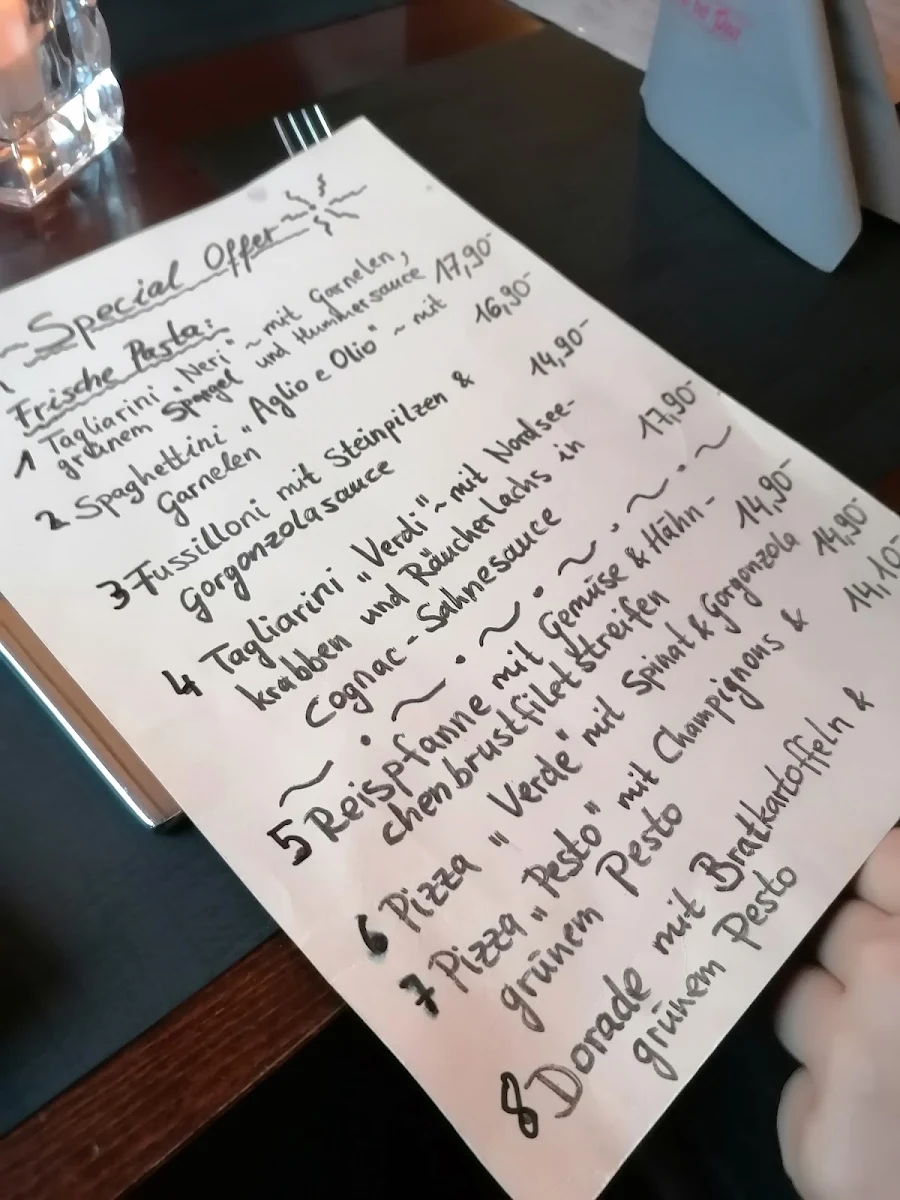 ~ Special Offer
Frische Pasta:
1 Tagliarini „Neri“ ~ mit Garnelen, 17,90-
grünem Spargel und Hummersauce
2 Spaghettini „Aglio e Olio“ ~ mit 16,90-
Garnelen
3 Fussilloni mit Steinpilzen & 14,90-
Gorgonzolasauce
4 Tagliarini „Verdi“ ~ mit Nordsee- 17,90-
krabben und Räucherlachs in
Cognac-Sahnesauce
~ • ~ • ~ • ~ • ~ • ~
5 Reispfanne mit Gemüse & Hähn- 14,90-
chenbrustfiletstreifen
6 Pizza „Verde“ mit Spinat & Gorgonzola 14,90-
7 Pizza „Pesto“ mit Champignons & 14,10-
grünem Pesto
8 Dorade mit Bratkartoffeln &
grünem Pesto